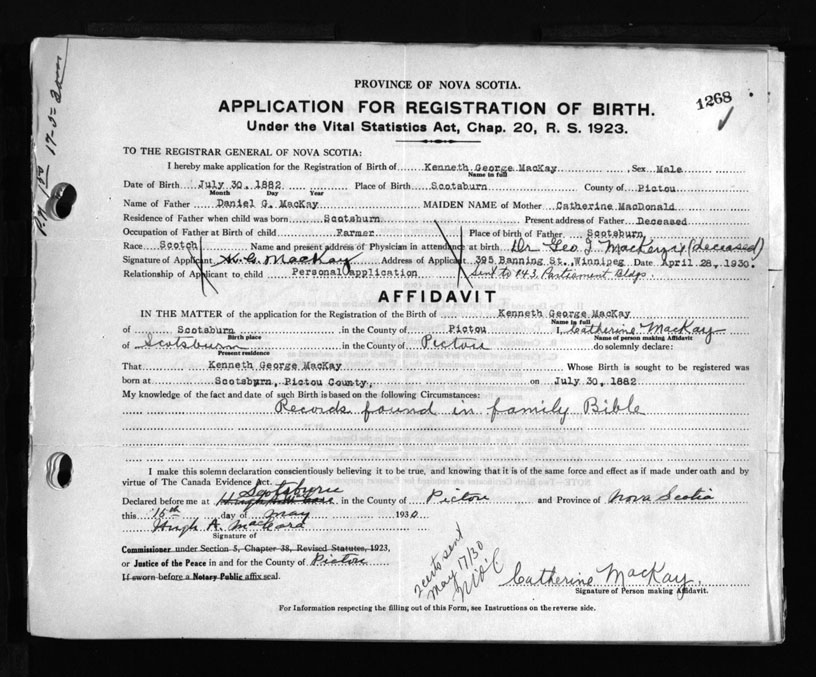 PROVINCE OF NOVA SCOTIA.
1268
APPLICATION FOR REGISTRATION OF BIRTH.
Under the Vital Statistics Act, Chap. 20, R. S. 1923.
TO THE REGISTRAR GENERAL OF NOVA SCOTIA:
I hereby make application for the Registration of Birth of Kenneth George MacKay, Sex Male
Name in full
Date of Birth July 30, 1882 Place of Birth Scotsburn County of Pictou
Month Day Year
Name of Father Daniel G. MacKay MAIDEN NAME of Mother Catherine MacDonald
Residence of Father when child was born Scotsburn Present address of Father Deceased
Occupation of Father at Birth of child Farmer Place of birth of Father Scotsburn
Race Scotch Name and present address of Physician in attendance at birth Dr Geo J. MacKenzie (deceased)
Signature of Applicant K.G. MacKay Address of Applicant 395 Banning St., Winnipeg Date April 28, 1930.
Relationship of Applicant to child Personal application Sent to 143 Parliament Bldgs.
AFFIDAVIT
IN THE MATTER of the application for the Registration of the Birth of Kenneth George MacKay
Name in full
of Scotsburn in the County of Pictou I, Catherine MacKay
Birth place Name of person making Affidavit
of Scotsburn in the County of Pictou do solemnly declare:
Present residence
That Kenneth George MacKay Whose Birth is sought to be registered was
born at Scotsburn, Pictou County, on July 30, 1882
My knowledge of the fact and date of such Birth is based on the following Circumstances:
Records found in family Bible
I make this solemn declaration conscientiously believing it to be true, and knowing that it is of the same force and effect as if made under oath and by
virtue of The Canada Evidence Act.
Scotsburn
Declared before me at in the County of Pictou and Province of Nova Scotia
this 15th day of May 1930
Hugh A.
Signature of
Commissioner under Section 5, Chapter 38, Revised Statutes, 1923,
or Justice of the Peace in and for the County of Pictou
If sworn before a Notary Public affix seal.
2 certs sent
May 17/30
Catherine MacKay.
Signature of Person making Affidavit.
For Information respecting the filling out of this Form, see Instructions on the reverse side.